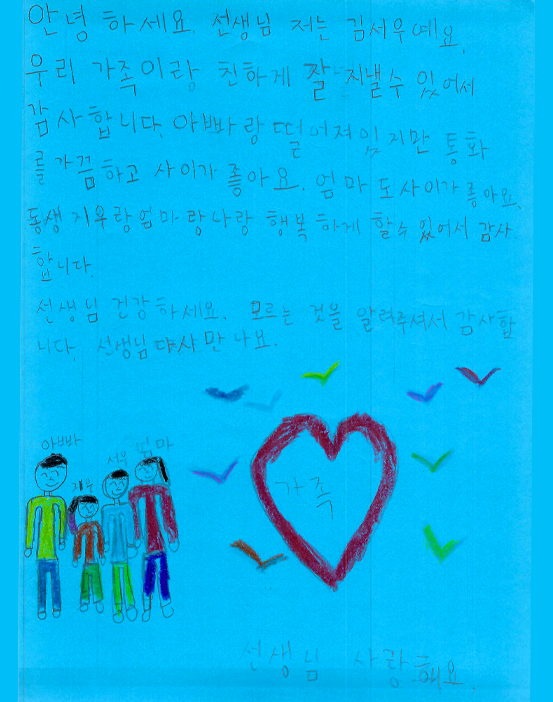 안녕하세요. 선생님 저는 김서우예요.
우리 가족이랑 친하게 잘 지낼수 있어서
감사합니다. 아빠랑 떨어져있지만 통화
를 가끔하고 사이가 좋아요. 엄마도사이가 좋아요.
동생 지우랑엄마랑나랑 행복하게 할수있어서 감사
합니다.
선생님 건강하세요. 모르는 것을 알려주셔서 감사합
니다. 선생님 다시 만나요.
아빠
지우
서우
엄마
가족
선생님 사랑해요.